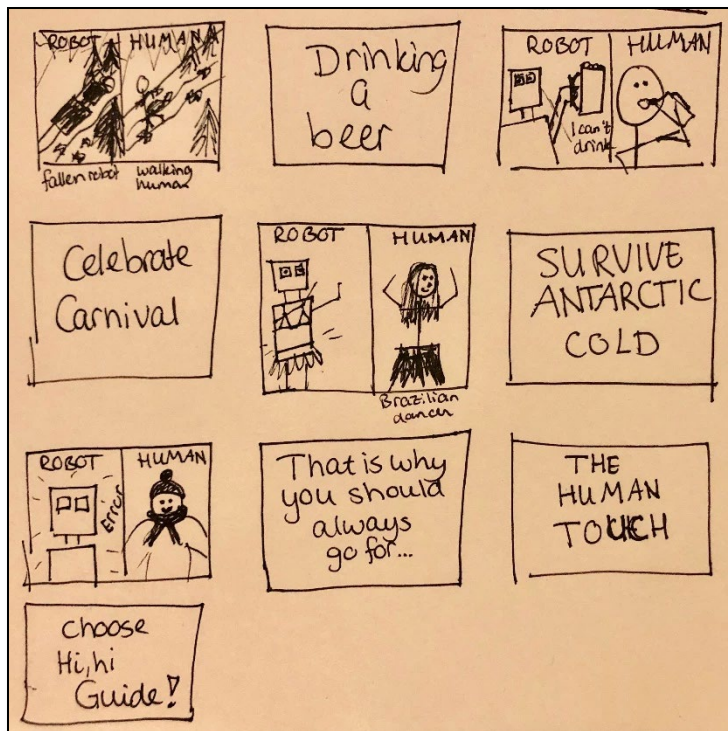 ROBOT HUMAN
fallen robot walking
human
Drinking
a
beer
ROBOT HUMAN
I can't
drink
Celebrate
Carnival
ROBOT HUMAN
Brazilian
dancer
SURVIVE
ANTARCTIC
COLD
ROBOT HUMAN
Error
That is why
you should
always
go for...
THE
HUMAN
TOUCH
choose
Hi,hi
Guide!